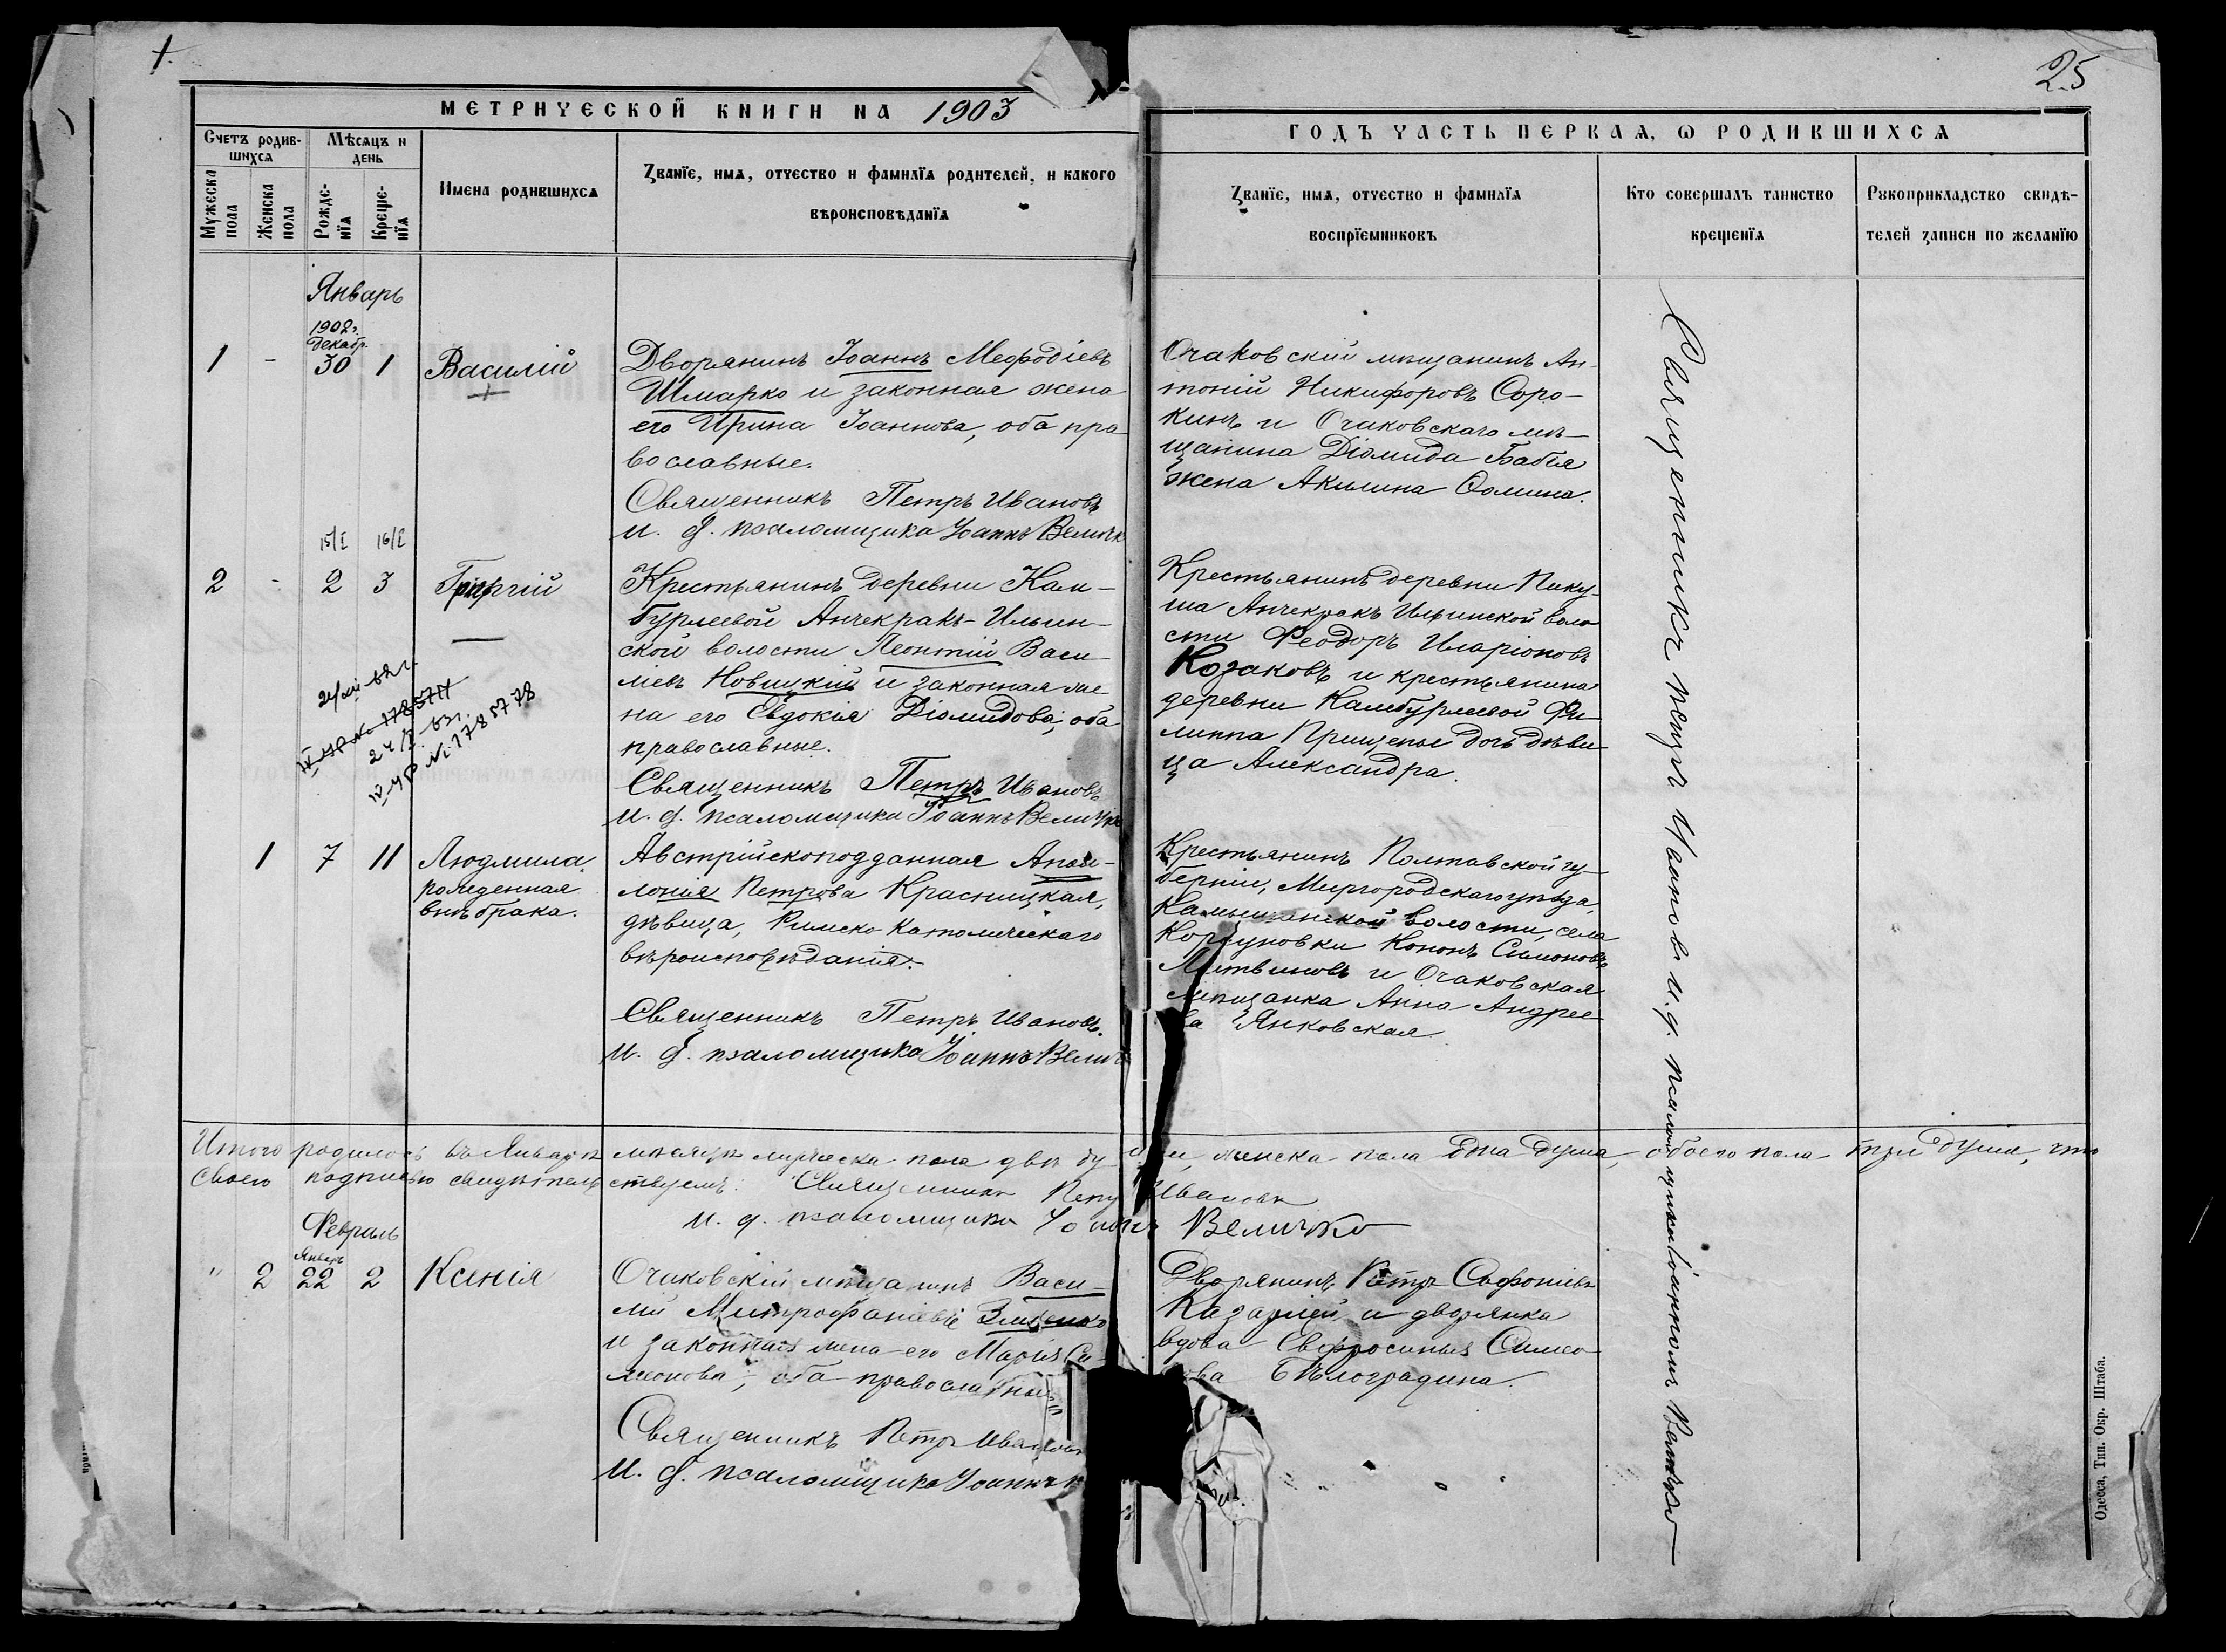 1.
25
МЕТРИЧЕСКОЙ КНИГИ НА 1903
ГОДЪ ЧАСТЬ ПЕРВАЯ, О РОДИВШИХСЯ
Счетъ родив-
шихся
Мѣсяцъ и
день
Мужеска
пола
Женска
пола
Рожде-
нія
Креще-
нія
Имена родившихся
Званіе, имя, отчество и фамилія родителей, и какого
вѣроисповѣданія
Званіе, имя, отчество и фамилія
воспріемниковъ
Кто совершалъ таинство
крещенія
Рукоприкладство свидѣ-
телей записи по желанію
Январь
1902 г.
Декабр.
1 - 30 1 Василій
Дворянинъ Іоаннъ Меѳодіевъ
Шмарко и законная жена
его Ирина Іоаннова, оба пра-
вославные.
Священникъ Петръ Ивановъ
И. д. псаломщика Іоаннъ Величк
Очаковскій мѣщанинъ Ан-
тоній Никифоровъ Соро-
кинъ и Очаковскаго мѣ-
щанина Діомида Бабія
жена Акилина Ѳомина.
15/I 16/I
2 - 2 3
Крестьянинъ деревни Кам-
бурлеевой Анчекракъ-Ильин-
ской волости Леонтій Васи-
ліевъ Новицкій и законная же-
на его Евдокія Діомидова, оба
православные.
Священникъ Петръ Ивановъ
И. д. псаломщика Іоаннъ Величко
IV УР № 1785778
Крестьянинъ деревни Пику-
ша Анчекракъ Ильинской воло
сти Ѳеодоръ Иларіоновъ
Козаковъ и крестьянина
деревни Камбурлеевой Фи-
липпа Прищепы дочь дѣви-
ца Александра.
1 7 11 Людмила,
рожденная
внѣ брака.
Австрійскоподданная Апол-
лонія Петрова Красницкая,
дѣвица, Римско-Католическаго
вѣроисповѣданія.
Священникъ Петръ Ивановъ.
И. д. псаломщика Іоаннъ Велич
Крестьянинъ Полтавской гу-
берніи, Миргородскаго уѣзда,
Камышанской волости, села
Корсуновки Кононъ Симоновъ
Литвиновъ и Очаковская
мѣщанка Анна Андрее-
ва Янковская.
Итого родилось въ Январѣ мѣсяцѣ мужеска пола двѣ души, женска пола одна душа, обоего пола три души, что
своею подписью свидѣтельствуемъ: Священникъ Петръ Ивановъ
И. д. псаломщика Іоаннъ Величко
Февраль
Январь
" 2 22 2 Ксенія
Очаковскій мѣщанинъ Васи-
лій Митрофаніевъ
и законная жена его Марія Си-
меонова, оба православные
Священникъ Петръ Ивановъ
И. д. псаломщика Іоаннъ В
Дворянинъ Петръ Софоніевъ
Казарлей и дворянка
вдова Евфросинія Симео-
нова Бѣлоградина.
Священникъ Петръ Ивановъ и. д. псаломщика Іоанномъ Величко
Одесса, Тип. Окр. Штаба.